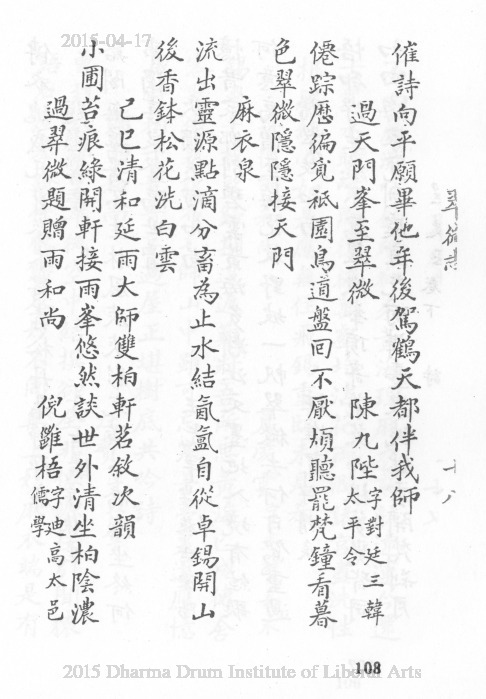 2015-04-17
翠微志
十八
催詩向平願畢他年後駕鶴天都伴我師
過天門峯至翠微 陳九陛字對廷三韓太平令
僊踪歷徧覔祗園鳥道盤回不厭煩聽罷梵鐘看暮
色翠微隱隱接天門
麻衣泉
流出靈源點滴分畜為止水結氤氲自從卓錫開山
後香鉢松花洗白雲
己巳清和延雨大師雙柏軒茗敘次韻
小圃苔痕綠開軒接雨峯悠然談世外清坐柏陰濃
過翠微題贈雨和尚 倪雝梧字迪高太邑儒學
108
2015 Dharma Drum Institute of Liberal Arts